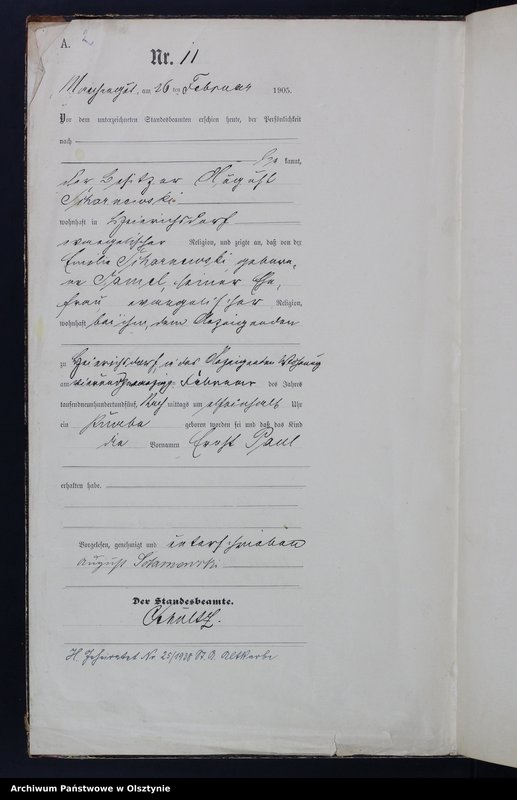 A. 2
Nr. 11
am 26 ten Februar 1905.
Vor dem unterzeichneten Standesbeamten erschien heute, der Persönlichkeit
nach
kannt,
der Besitzer August
wohnhaft in Heinrichsdorf
evangelischer Religion, und zeigte an, daß von der
Emilie gebore-
ne seiner Ehe-
frau evangelischer Religion,
wohnhaft bei ihm, dem Anzeigenden
zu Heinrichsdorf, in des Anzeigenden Wohnung
am vierundzwanzig- Februar des Jahres
tausendneunhundertundfünf, Nach mittags um elfeinhalb Uhr
ein Knabe geboren worden sei und daß das Kind
die Vornamen Ernst Paul
erhalten habe.
Vorgelesen, genehmigt und unterschrieben
August
Der Standesbeamte.
Schultz.
H. Geheiratet Nr 25/1938 St. A. Altkarbe
Archiwum Państwowe w Olsztynie